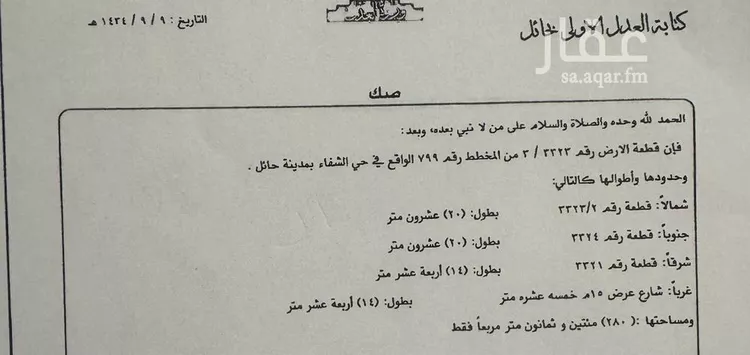 كتابة العدل الاولى بحائل
التاريخ : ٩ / ٩ / ١٤٣٤ هـ
عقار
sa.aqar.fm
صك
الحمد لله وحده والصلاة والسلام على من لا نبي بعده، وبعد:
فإن قطعة الارض رقم ٣٣٢٣ / ٣ من المخطط رقم ٧٩٩ الواقع في حي الشفاء بمدينة حائل .
وحدودها وأطوالها كالتالي:
شمالاً: قطعة رقم ٣٣٢٣/٢ بطول: (٢٠) عشرون متر
جنوباً: قطعة رقم ٣٣٢٤ بطول: (٢٠) عشرون متر
شرقاً: قطعة رقم ٣٣٢١ بطول: (١٤) أربعة عشر متر
غرباً: شارع عرض ١٥م خمسه عشره متر بطول: (١٤) أربعة عشر متر
ومساحتها :( ٢٨٠) مئتين و ثمانون متر مربعاً فقط